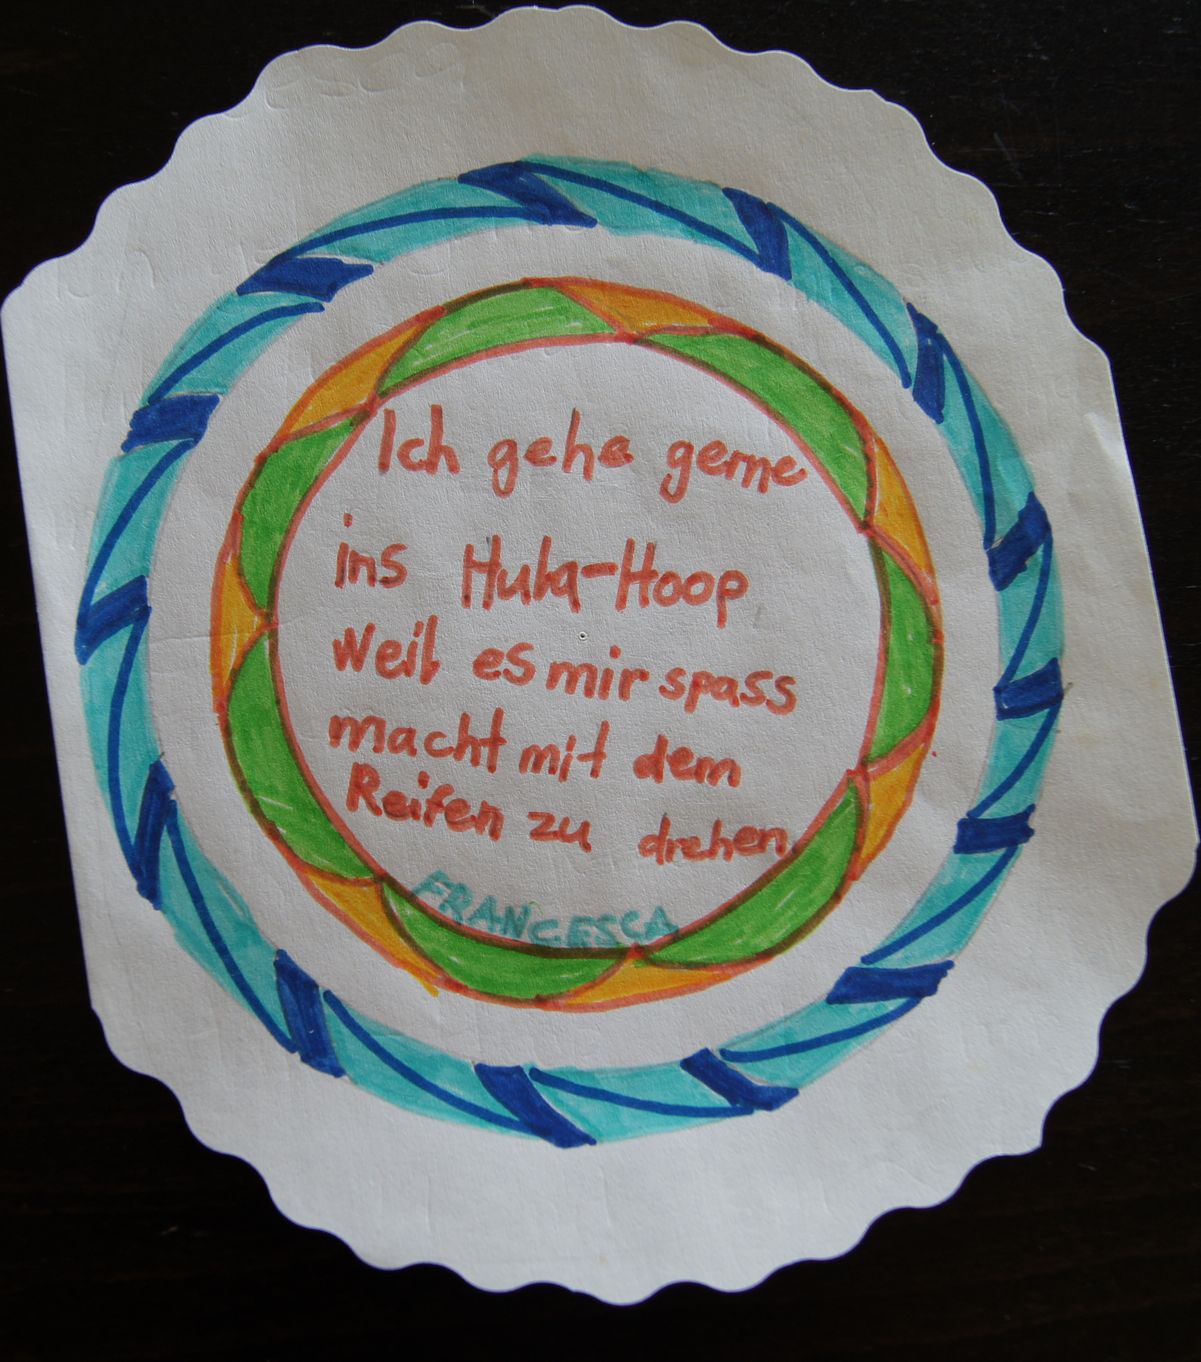 Ich gehe gerne
ins Hula-Hoop
weil es mir spass
macht mit dem
Reifen zu drehen.
FRANCESCA